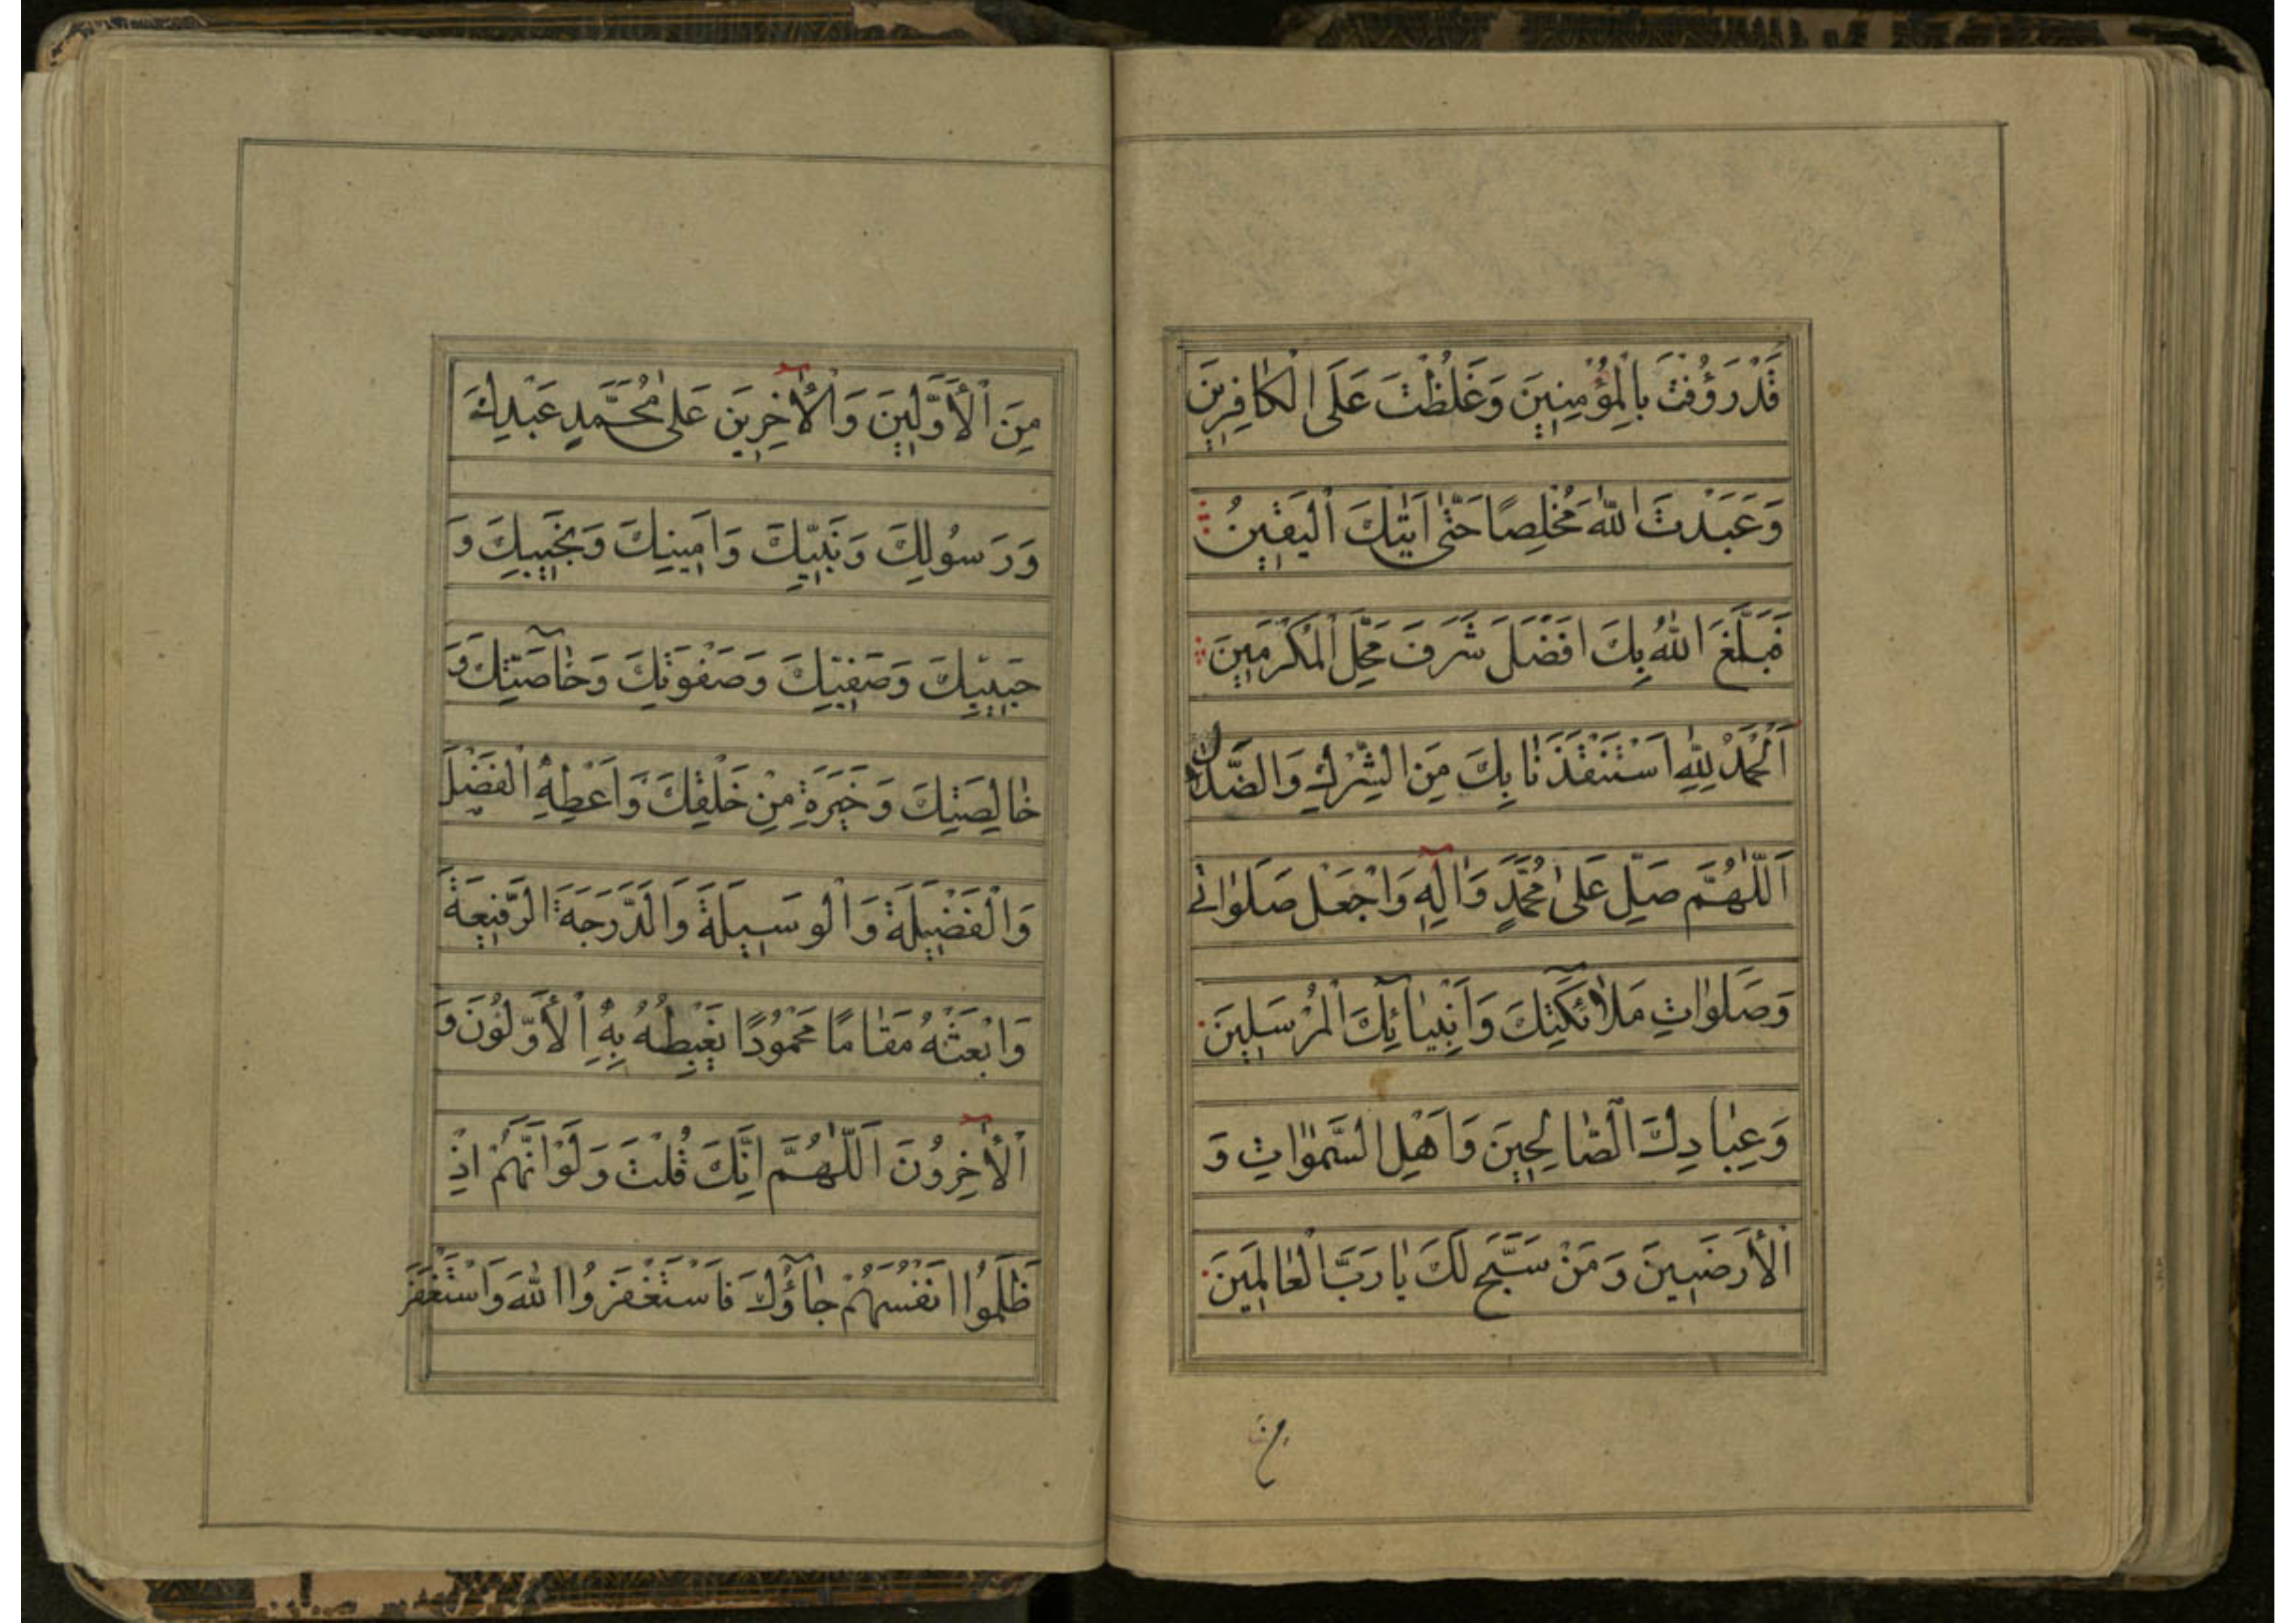 قَدْ رَؤُفْتَ بِالْمُؤْمِنِينَ وَغَلُظْتَ عَلَى الْكَافِرِينَ
وَعَبَدْتَ اللّٰهَ مُخْلِصًا حَتّٰى اَتٰيكَ الْيَقِينُ
فَبَلَّغَ اللّٰهُ بِكَ اَفْضَلَ شَرَفَ مَحَلِّ الْمُكْرَمِينَ
اَلْحَمْدُ لِلّٰهِ اسْتَنْقَذَنَا بِكَ مِنَ الشِّرْكِ وَالضَّلَالِ
اَللّٰهُمَّ صَلِّ عَلٰى مُحَمَّدٍ وَاٰلِهِ وَاجْعَلْ صَلَوٰاتِ
وَصَلَوٰاتِ مَلٰائِكَتِكَ وَاَنْبِيٰآئِكَ الْمُرْسَلِينَ
وَعِبٰادِكَ الصّٰالِحِينَ وَاَهْلِ السَّمٰوٰاتِ وَ
الْأَرَضِينَ وَمَنْ سَبَّحَ لَكَ يٰا رَبَّ الْعٰالَمِينَ
مِنَ
مِنَ الْأَوَّلِينَ وَالْاٰخِرِينَ عَلٰى مُحَمَّدٍ عَبْدِكَ
وَرَسُولِكَ وَنَبِيِّكَ وَاَمِينِكَ وَنَجِيبِكَ وَ
حَبِيبِكَ وَصَفِيِّكَ وَصَفْوَتِكَ وَخٰآصَّتِكَ وَ
خٰالِصَتِكَ وَخِيَرَةِ مِنْ خَلْقِكَ وَاَعْطِهِ الْفَضْلَ
وَالْفَضِيلَةَ وَالْوَسِيلَةَ وَالدَّرَجَةَ الرَّفِيعَةَ
وَابْعَثْهُ مَقٰامًا مَحْمُودًا يَغْبِطُهُ بِهِ الْأَوَّلُونَ وَ
الْاٰخِرُونَ اَللّٰهُمَّ اِنَّكَ قُلْتَ وَلَوْ اَنَّهُمْ اِذْ
ظَلَمُوا اَنْفُسَهُمْ جٰآؤُكَ فَاسْتَغْفَرُوا اللّٰهَ وَاسْتَغْفَرَ